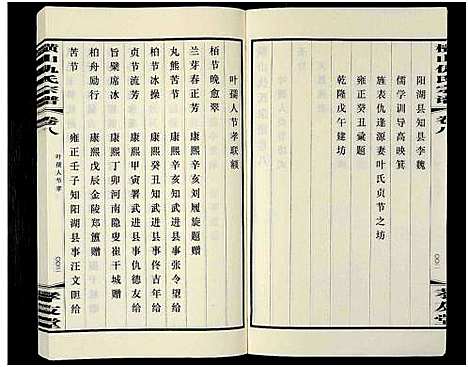 横山仇氏宗谱 卷八
阳湖县知县李魏
儒学训导高映箕
旌表仇逢源妻叶氏贞节之坊
雍正癸丑汇题
乾隆戊午建坊
孝友堂
叶孺人节孝联额
栢节晚愈翠
兰芽春正芳 康熙辛亥刘履旋题赠
丸熊苦节 康熙辛亥知武进县事张令望给
柏节冰操 康熙癸丑知武进县事佟吉年给
贞节流芳 康熙甲寅署武进县事仇德友给
旨檗席冰 康熙丁卯河南隐叟崔干城赠
柏舟励行 康熙戊辰金陵郑簠赠
苦节 雍正壬子知阳湖县事汪文甠给
横山仇氏宗谱 卷八
叶孺人节孝
孝友堂